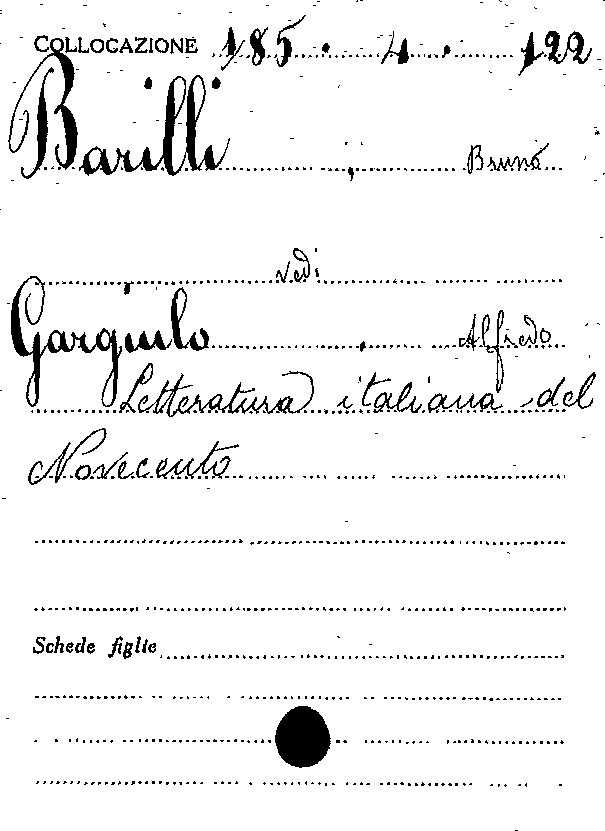 COLLOCAZIONE 185. 4. 122
Barilli, Bruno
vedi
Gargiulo, Alfredo
Letteratura italiana del
Novecento
Schede figlie